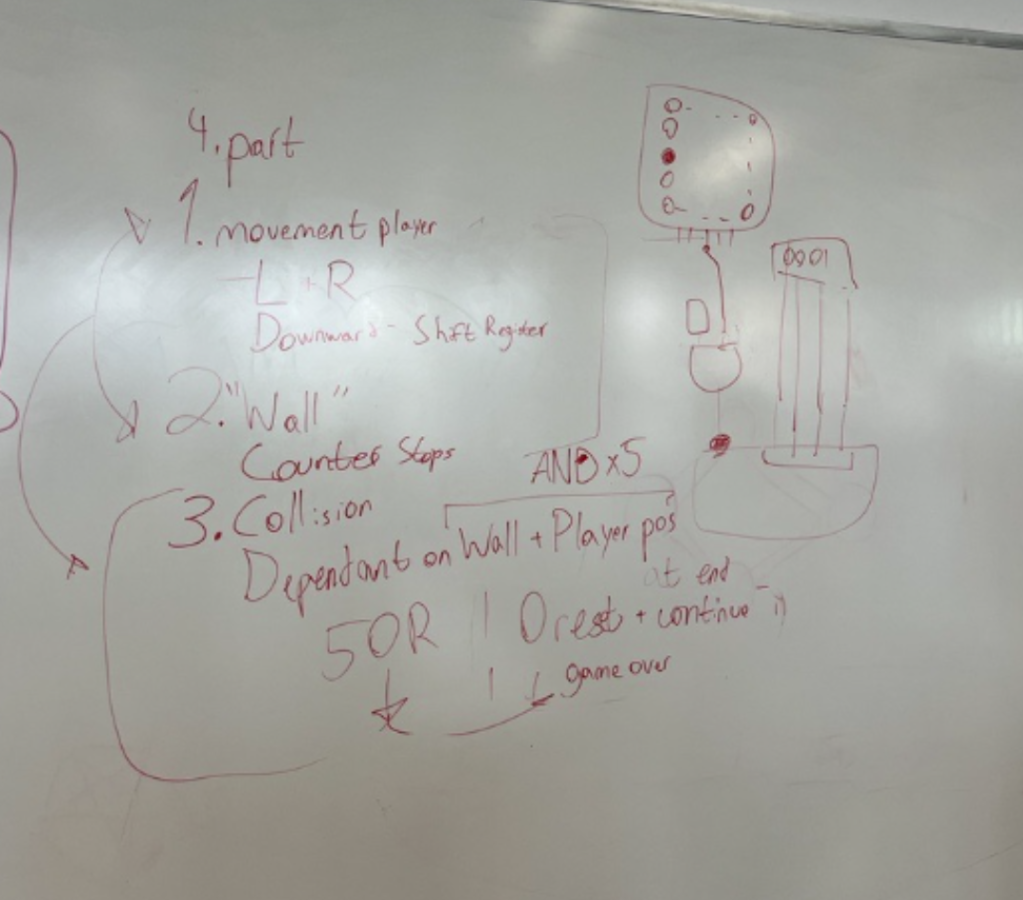 4. part
1. movement player
- L + R
Downward - Shift Register
2. "Wall"
Counter Stops
AND x5
3. Collision
Dependant on Wall + Player pos
at end
5OR | 0 rest + continue
| 1 game over
0001